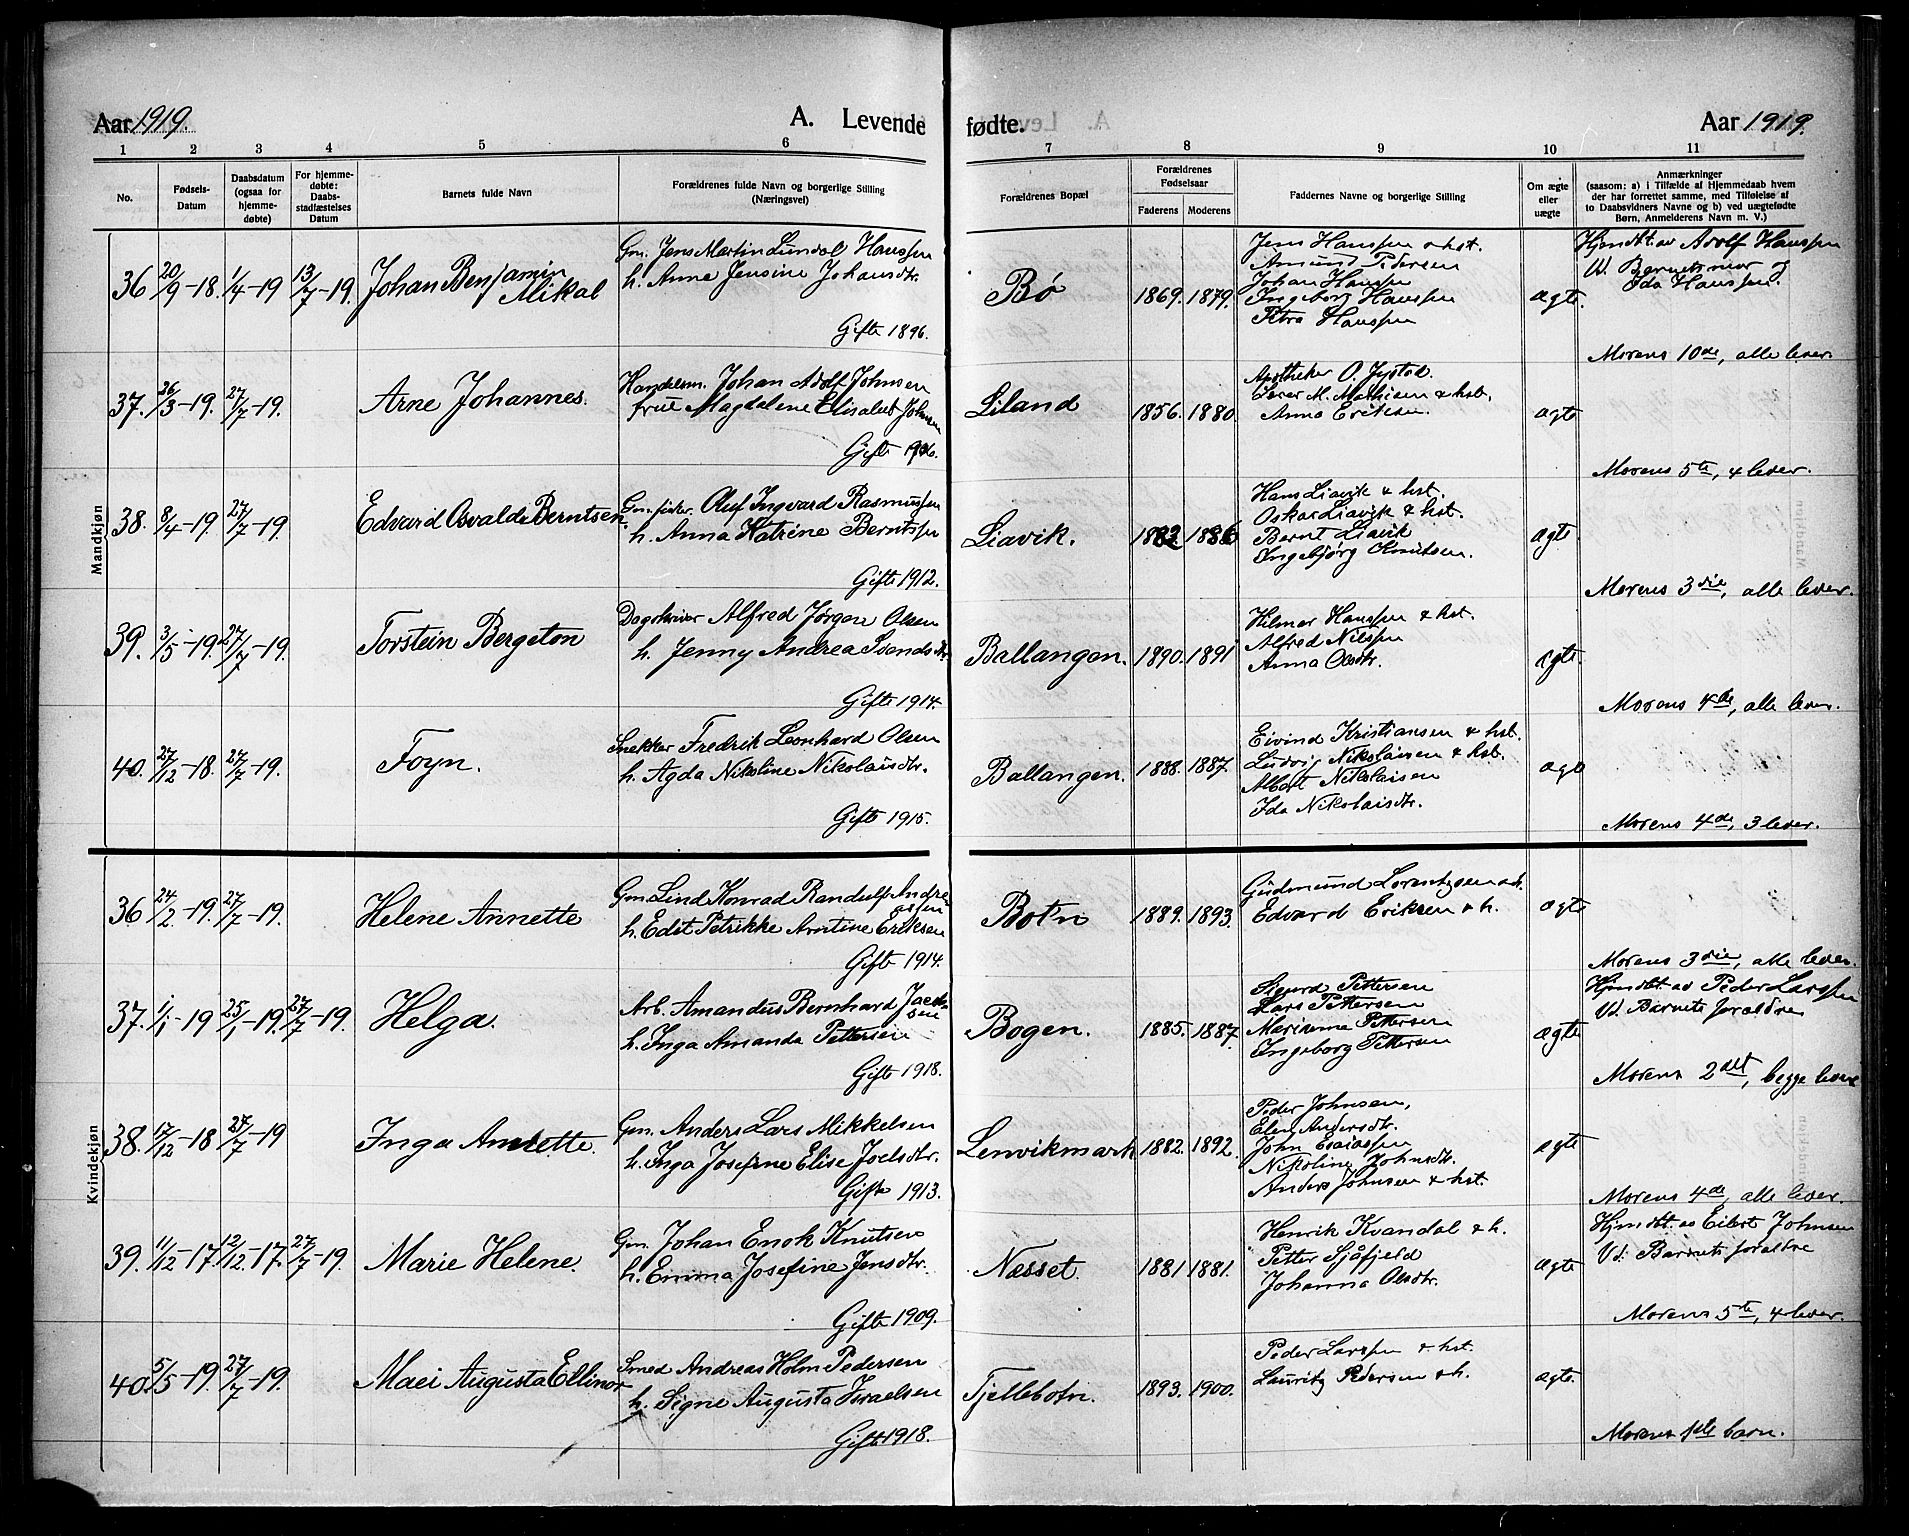 Aar 1919.
A. Levende
fødte.
Aar 1919.
1 2 3 4 5 6 7 8 9 10 11
No.
Fødsels-
Datum
Daabsdatum
(ogsaa for
hjemme-
døbte)
For hjemme-
døbte:
Daabs-
stadfæstelses
Datum
Barnets fulde Navn
Forældrenes fulde Navn og borgerlige Stilling
(Næringsvei)
Forældrenes Bopæl
Forældrenes
Fødselsaar
Faderens Moderens
Faddernes Navne og borgerlige Stilling
Om ægte
eller
uægte
Anmærkninger
(saasom: a) i Tilfælde af Hjemmedaab hvem
der har forrettet samme, med Tilføielse af
to Daabsvidners Navne og b) ved uægtefødte
Børn, Anmelderens Navn m. V.)
Mandkjøn
36 20/9-18. 1/4-19 13/7-19. Johan Benjamin
Mikal
Gm. Jens Martin Lundal Hanssen
h. Anna Jensine Johansdtr.
Gifte 1896.
Bø 1869. 1879.
Jens Hanssen & hst.
Amund Pedersen
Johan Hanssen
Ingeborg Hanssen
Petra Hanssen
ægte.
Hjmdbt. av Adolf Hanssen
Vd. Barnets mor og
Ida Hanssen.
Morens 10de, alle lever.
37. 26/3-19. 27/7-19. Arne Johannes.
Handelsm. Johan Adolf Johnsen
frue Magdalene Elisabet Johnsen
Gifte 1906.
Liland 1856. 1880.
Apotheker O. Jystad.
Lærer M. Mathisen & hst.
Anna Eriksen.
ægte
Morens 5te, 4 lever.
38. 8/4-19. 27/7-19. Edvard Osvald Berntsen.
Gm. fisker. Oluf Ingvard Rasmussen
h. Anna Katrine Berntssen
Gifte 1912.
Liavik. 1882 1886
Hans Liavik & hst.
Oskar Liavik & hst.
Bernt Liavik
Ingebjørg Knutsen.
ægte
Morens 3die, alle lever.
39. 3/5-19. 27/7-19. Torstein Bergeton
Alfred Jørgen Olsen
h. Jenny Andrea
Gifte 1914.
Ballangen. 1890. 1891
Hilmar Hanssen & hst.
Alfred Nilssen
Anna Olsdtr.
ægte
Morens 4de, alle lever.
40. 27/12-18. 27/7-19. Foyn.
Snekker Fredrik Leonhard Olsen
h. Agda Nikoline Nikolaisdtr.
Gifte 1915.
Ballangen. 1888. 1887.
Eivind Kristiansen & hst.
Ludvig Nikolaisen & hst.
Albert Nikolaisen
Ida Nikolaisdtr.
Morens 4de, 3 lever.
Kvindekjøn
36 24/2-19. 27/7-19. Helene Annette
Gm. Lind Konrad Randulf Andre-
assen
h. Edit Petrikke Arntine Eriksen
Gifte 1914.
Botn 1889. 1893.
Gudmund Lorentzen & h.
Edvard Eriksen & h.
ægte
Morens 3die, alle lever.
37. 1/1-19 25/1-19. 27/7-19. Helga.
Arb. Amandus Bernhard Jacob-
sen
h. Inga Amanda Pettersen
Gifte 1918.
Bogen. 1885. 1887.
Sigurd Pettersen
Lars Pettersen
Marianna Pettersen
Ingeborg Pettersen
ægte
Hjmdbt. av Peder Larssen
Vd. Barnets forældre
Morens 2det, begge lever
38. 17/12-18 27/7-19 Inga Annette.
Gm. Anders Lars Mikkelsen
h. Inga Josefine Elise Joelsdtr.
Gifte 1913.
Lenvikmark 1882. 1892.
Peder Johnsen,
Elen Andersdtr.
John Esaiassen
Nikoline Johnsdtr.
Anders Johnsen & hst.
ægte
Morens 4de, alle lever.
39. 11/12-17 12/12-17. 27/7-19. Marie Helene.
Gm. Johan Enok Knutsen
h. Emma Josefine Jensdtr.
Gifte 1909.
Næsset. 1881 1881.
Henrik Kvandal & h.
Petter Sjåfjeld
Johanna Olsdtr.
ægte
Hjmdbt. av Eilert Johnsen
Vd. Barnets forældre
Morens 5te, 4 lever.
40. 5/5-19. 27/7-19. Maei Augusta Ellinor
Smed Andreas Holm Pedersen
h. Signe Augusta Israelsen
Gifte 1918.
Tjellebotn. 1893. 1900.
Peder Larssen & hst.
Lauritz Pedersen & h.
ægte.
Morens 1ste barn.